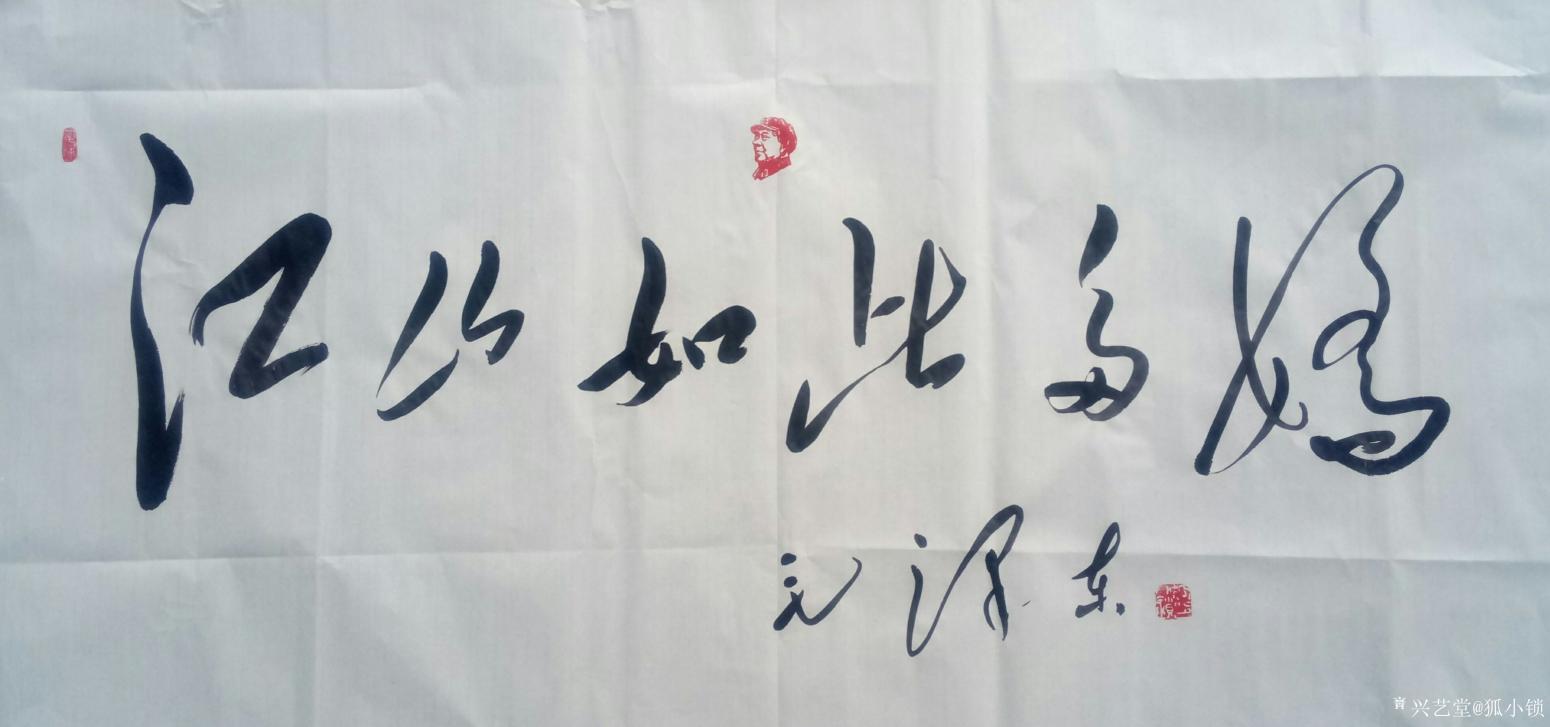 江山如此多娇
毛泽东
兴艺堂@狐小锁